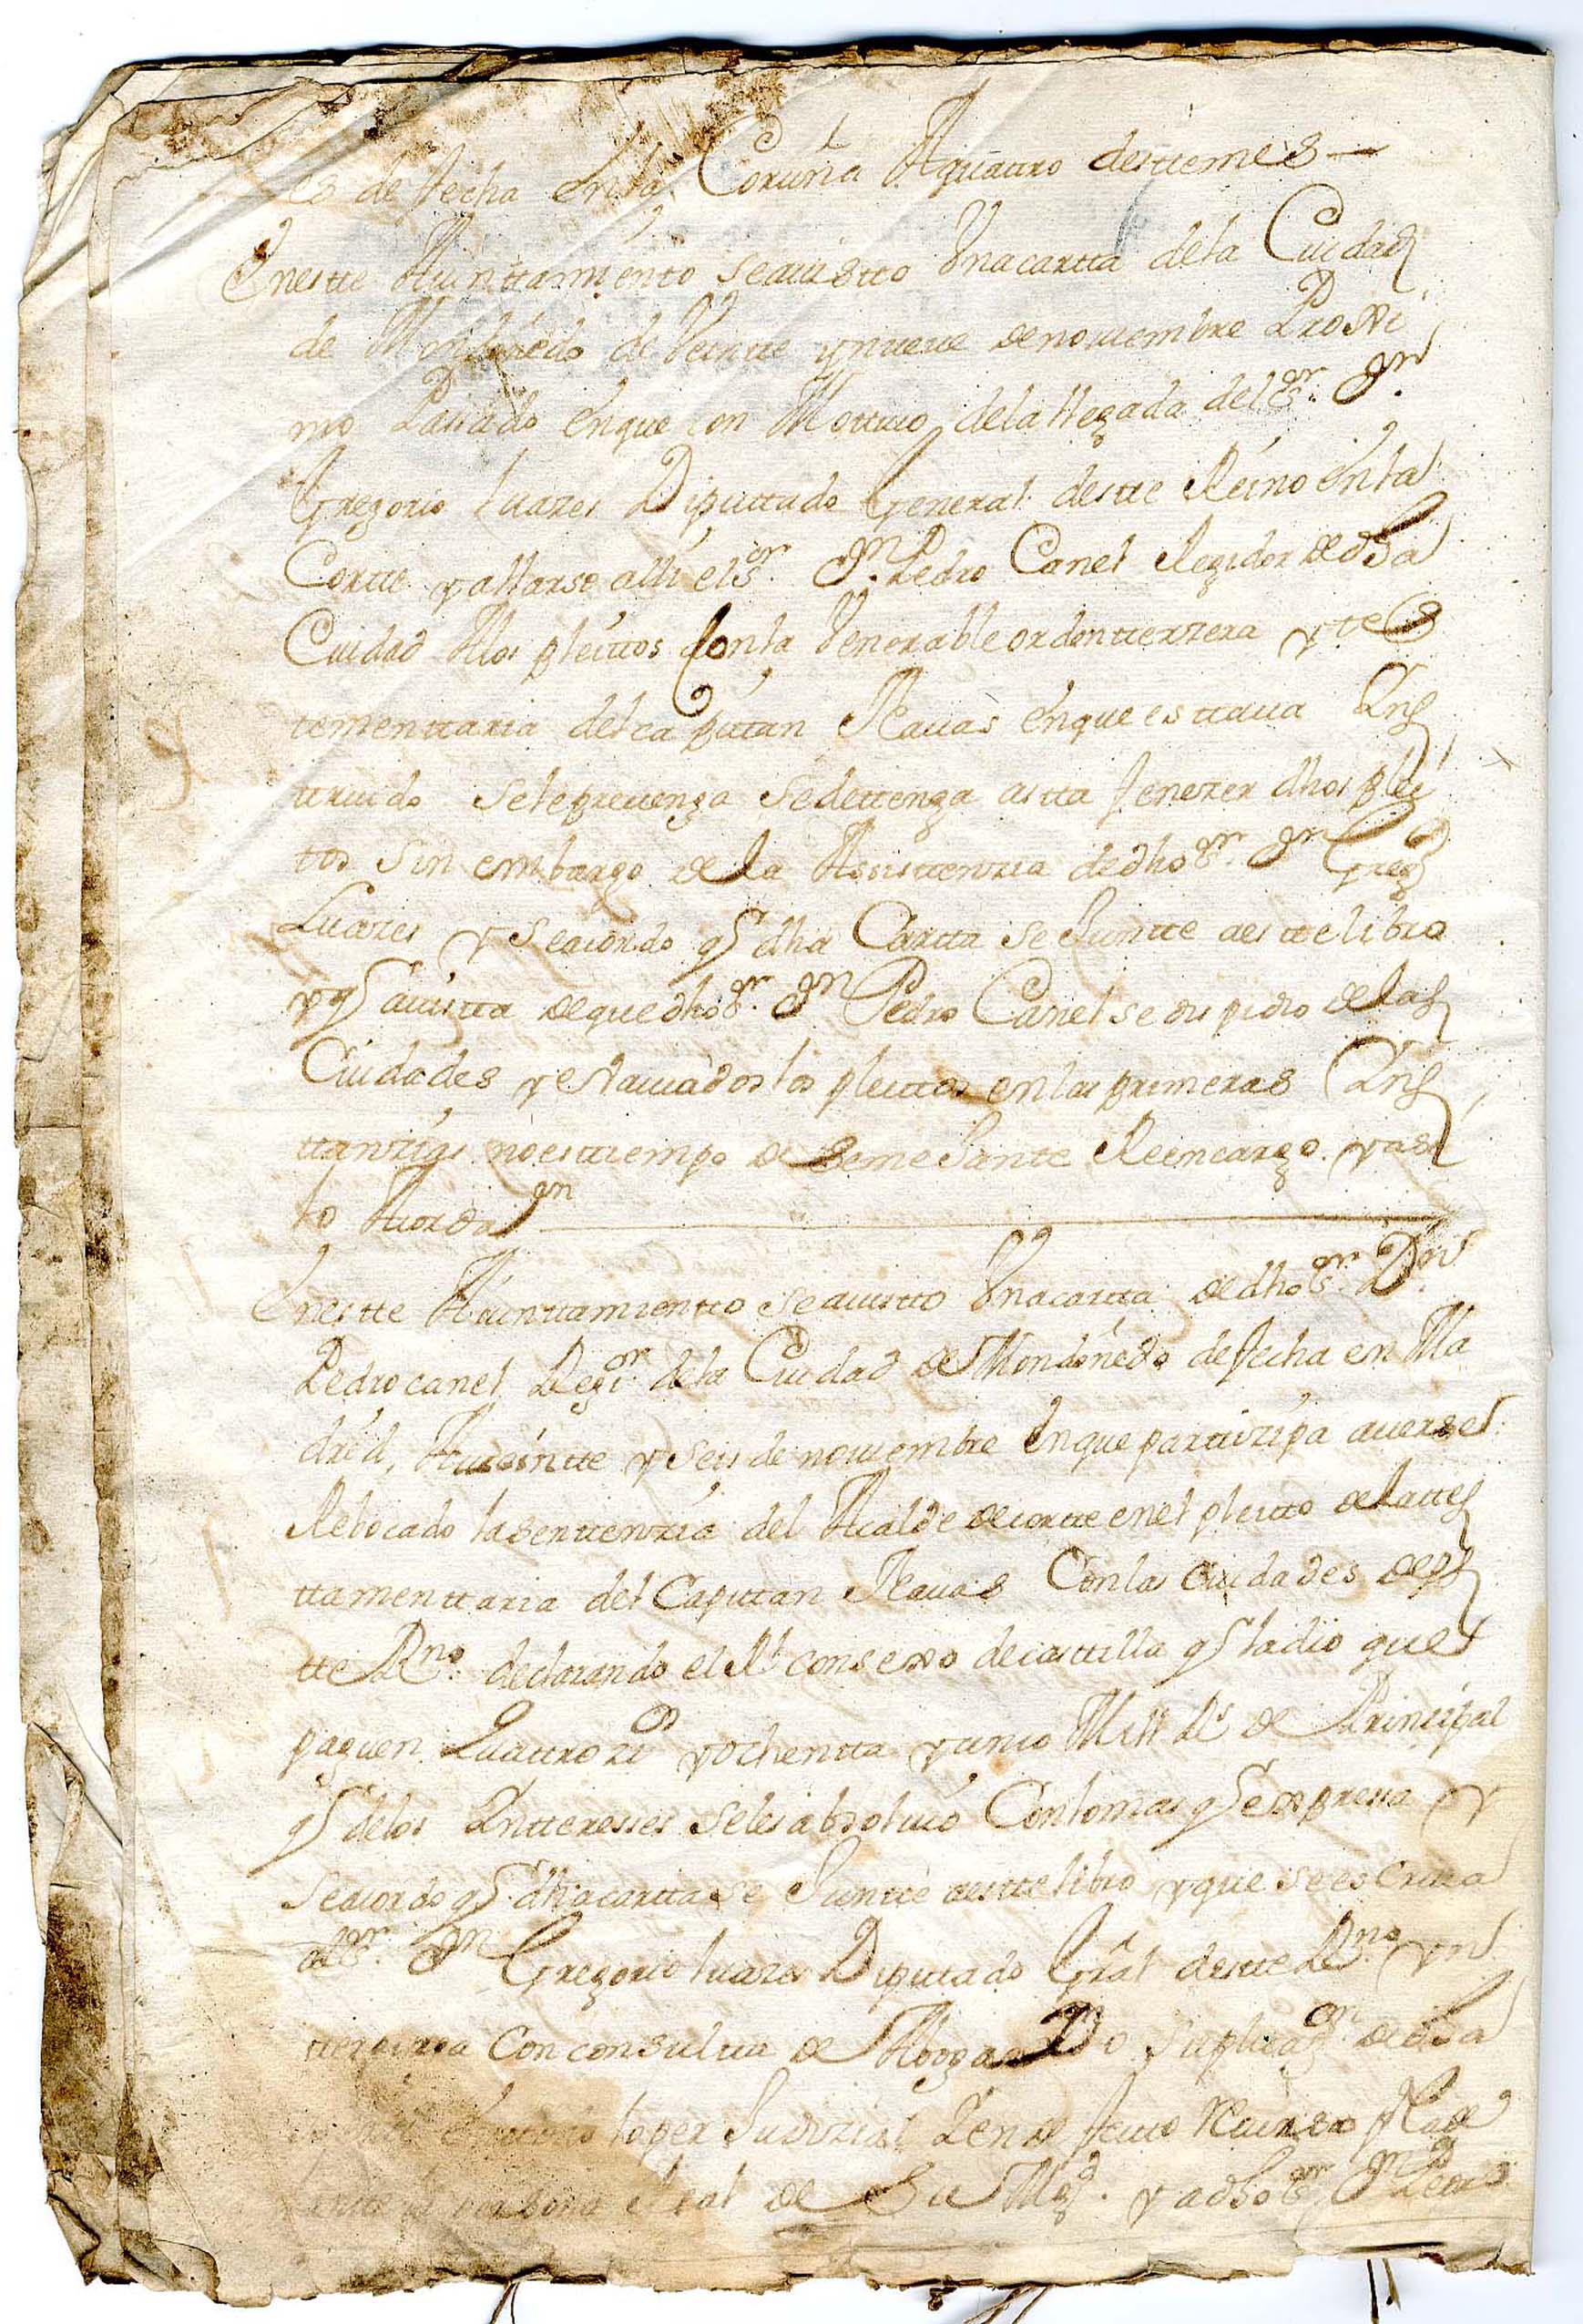 es de fecha en la Coruña A quattro destte mes
En estte Aiunttamiento se a uistto Vna cartta de la Ciudad
de Mondoñedo de Veintte y nueue de nouiembre Proxi
mo Passado en que con Mottiuo de la llegada del Sr. Dn.
Gregorio luazes Diputtado General destte Reino en la
Cortte y allarse alli el Sr. Dn. Pedro Canel Regidor de dha
Ciudad A los pleittos con la Venerable orden tterzera y tes
tamenttaria del capittan Nauas en que esttaua Ins
ttruido se le preuenga se dettenga astta fenezer dhos plei
tos sin embargo de la Assisttenzia de dho Sr. Dn Grego
Luazes y se acordo q dha Cartta se Juntte a estte libro
y q a uistta de que dho Sr. Dn Pedro Canel se dispidio de las
Ciudades y euacuados los pleittos en las primeras Ins
ttanzias no es ttiempo de semejante Reencargo y assi
lo Acordaron
En estte Aiunttamientto se a uistto Vna cartta de dho Sr. Dn.
Pedro canel Regior. de la Ciudad de Mondoñedo de fecha en Ma
drid, A ueintte y seis de nouiembre en que partizipa auerse
Rebocado la senttenzia del Alcalde de cortte en el pleitto de la ttes
ttamenttaria del Capittan Nauas Con las ciudades de es
tte Rno. declarando el Rl consexo de casttilla q la dio que
paguen quattrozi y ochentta y cinco Mill Rs de Principal
q de los Intteresses se les absoluio Con lo mas q expressa y
se acordo q dha cartta se Juntte a estte libro y que se escriua
al Sr. Dn Gregorio luazes Diputado Gral destte Rno. yn
tterponga con consultta de Abogado Suplicaon. de dha
lo perJudizial Yen su Reurso
Real de Su Magd. y a dho Sr. Dn Pedro